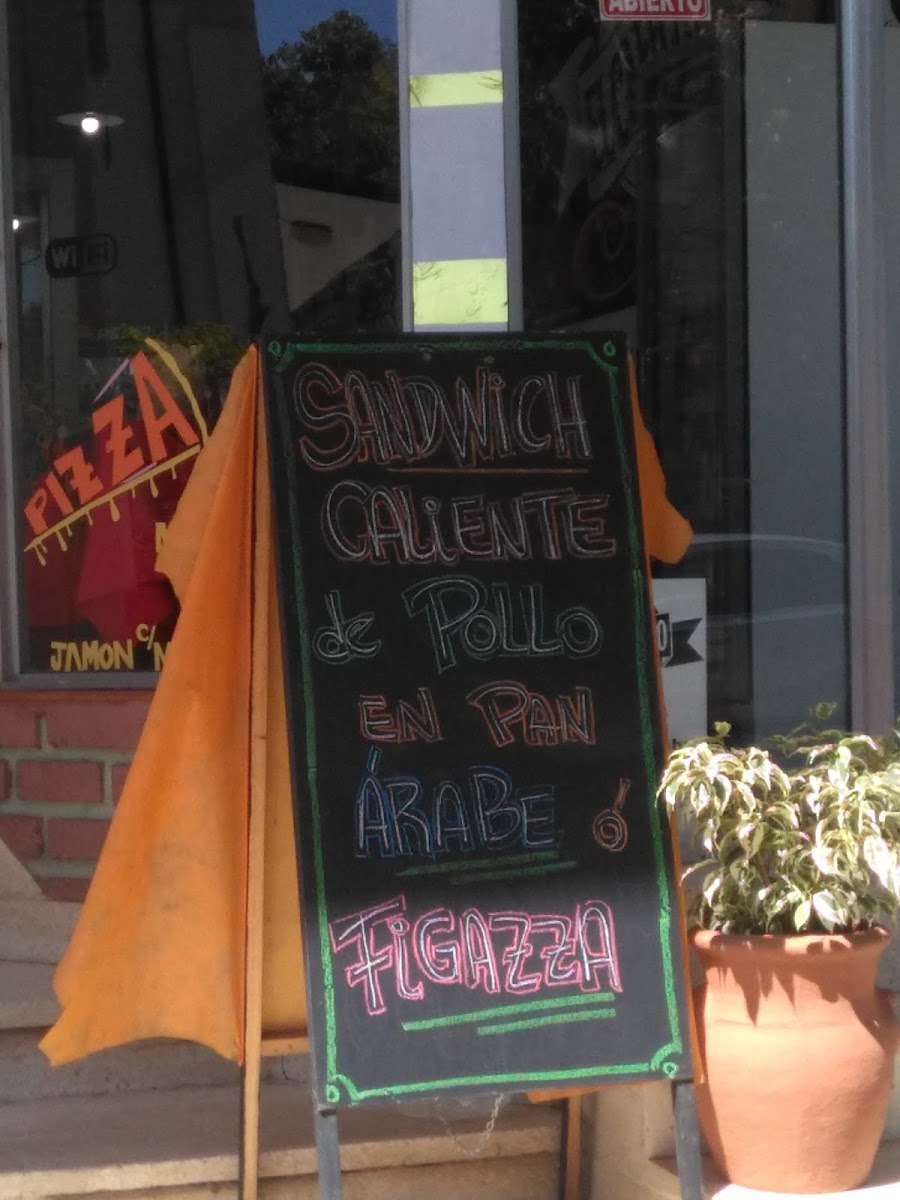 ABIERTO
WiFi
PIZZA
JAMON c/
SANDWiCH
CALiENTE
de POLLO
EN PAN
ÁRABE ó
FiGAZZA